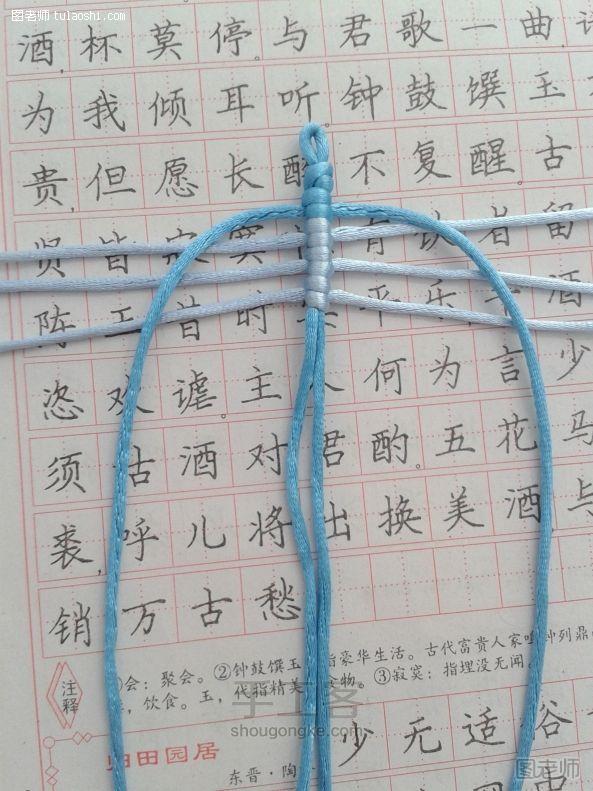 图老师 tulaoshi.com
酒,杯莫停。与君歌一曲,
为我倾耳听。钟鼓馔玉
贵,但愿长醉不复醒。古
贤皆寂寞 有饮者留
陈王昔时 平乐 酒
恣欢谑。主人何为言少
须沽酒对君酌。五花马
裘,呼儿将出换美酒,与
销万古愁
注释
会:聚会。②钟鼓馔玉 指豪华生活。古代富贵人家 钟列鼎
,饮食。玉, 代指精美 物。③寂寞:指埋没无闻。
手工客
shougongke.com
少无适俗
归田园居
东晋·陶
图老师